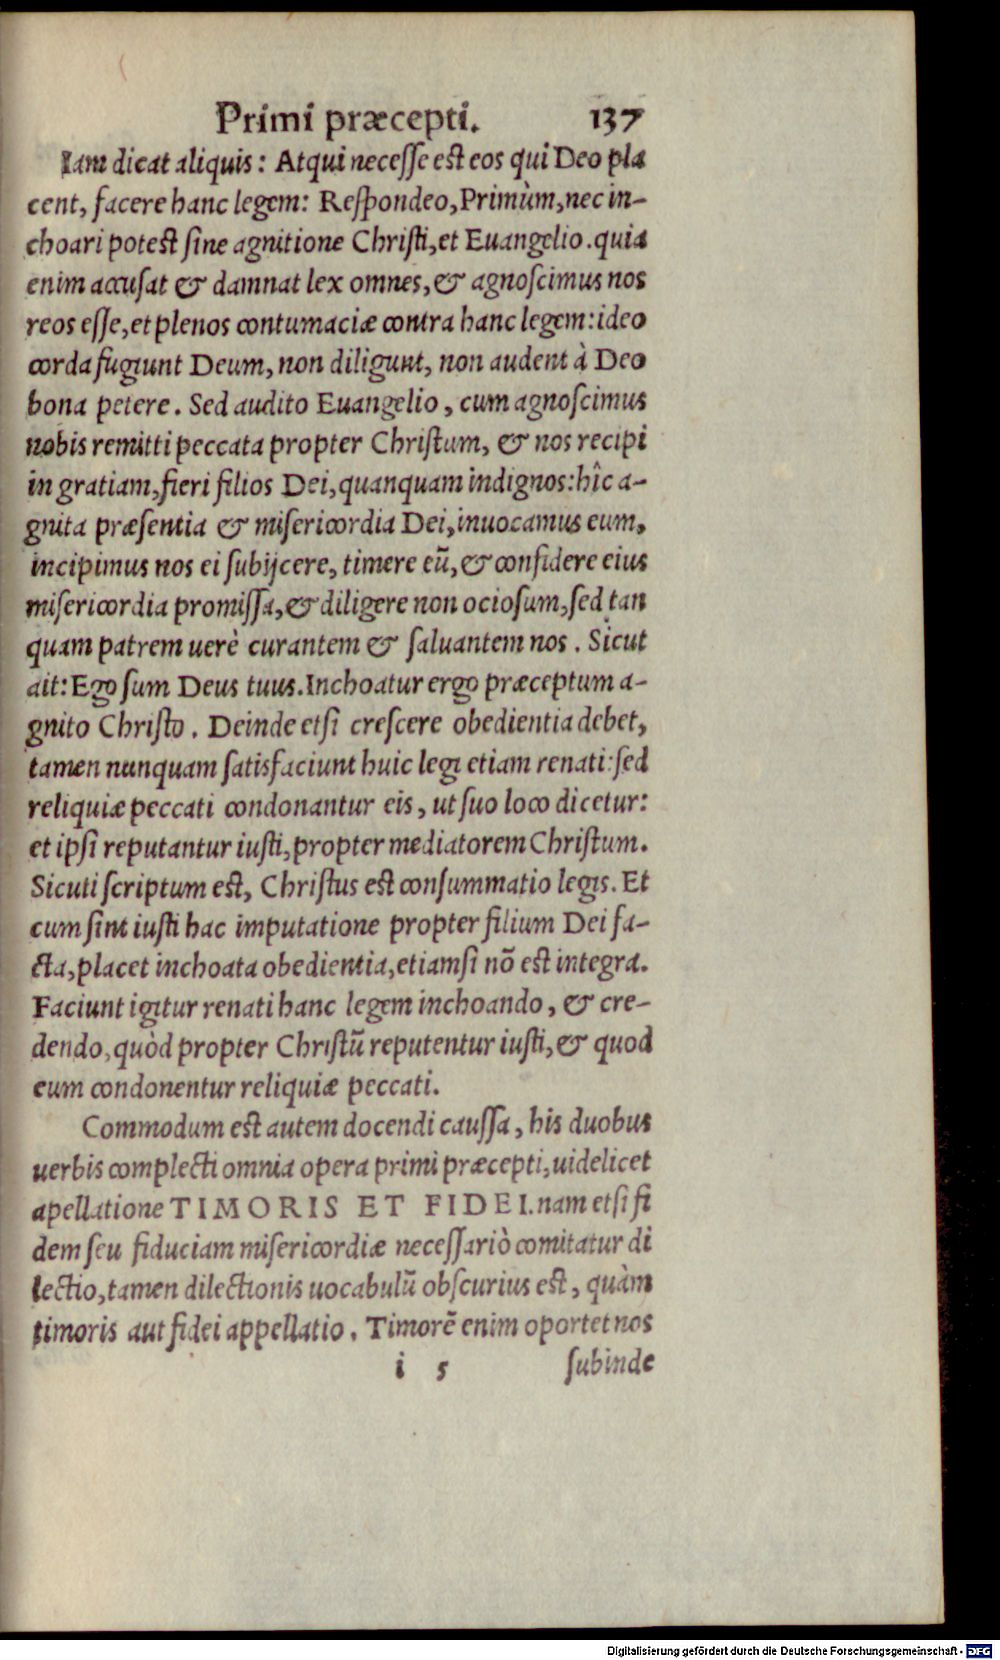 Primi præcepti. 137
Iam dicat aliquis: Atqui neceſſe est eos qui Deo pla
cent, facere hanc legem: Reſpondeo, Primùm, nec in-
choari potest ſine agnitione Chriſti, et Euangelio. quia
enim accuſat & damnat lex omnes, & agnoſcimus nos
reos eſſe, et plenos contumaciæ contra hanc legem: ideo
corda fugiunt Deum, non diligunt, non audent à Deo
bona petere. Sed audito Euangelio, cum agnoſcimus
nobis remitti peccata propter Chriſtum, & nos recipi
in gratiam, fieri filios Dei, quanquam indignos: hîc a-
gnita præſentia & miſericordia Dei, inuocamus eum,
incipimus nos ei ſubijcere, timere eū, & confidere eius
miſericordia promiſſa, & diligere non ocioſum, ſed tan
quam patrem uerè curantem & ſaluantem nos. Sicut
ait: Ego ſum Deus tuus. Inchoatur ergo præceptum a-
gnito Chriſto. Deinde etſi creſcere obedientia debet,
tamen nunquam ſatisfaciunt huic legi etiam renati: ſed
reliquiæ peccati condonantur eis, ut ſuo loco dicetur:
et ipſi reputantur iuſti, propter mediatorem Chriſtum.
Sicuti ſcriptum est, Chriſtus est conſummatio legis. Et
cum ſint iuſti hac imputatione propter filium Dei fa-
cta, placet inchoata obedientia, etiamſi nõ est integra.
Faciunt igitur renati hanc legem inchoando, & cre-
dendo, quòd propter Chriſtū reputentur iuſti, & quod
eum condonentur reliquiæ peccati.
Commodum est autem docendi cauſſa, his duobus
uerbis complecti omnia opera primi præcepti, uidelicet
apellatione TIMORIS ET FIDEI. nam etſi fi
dem ſeu fiduciam miſericordiæ neceſſariò comitatur di
lectio, tamen dilectionis uocabulū obſcurius est, quàm
timoris aut fidei appellatio. Timorẽ enim oportet nos
i 5 ſubinde
Digitalisierung gefördert durch die Deutsche Forschungsgemeinschaft - DFG